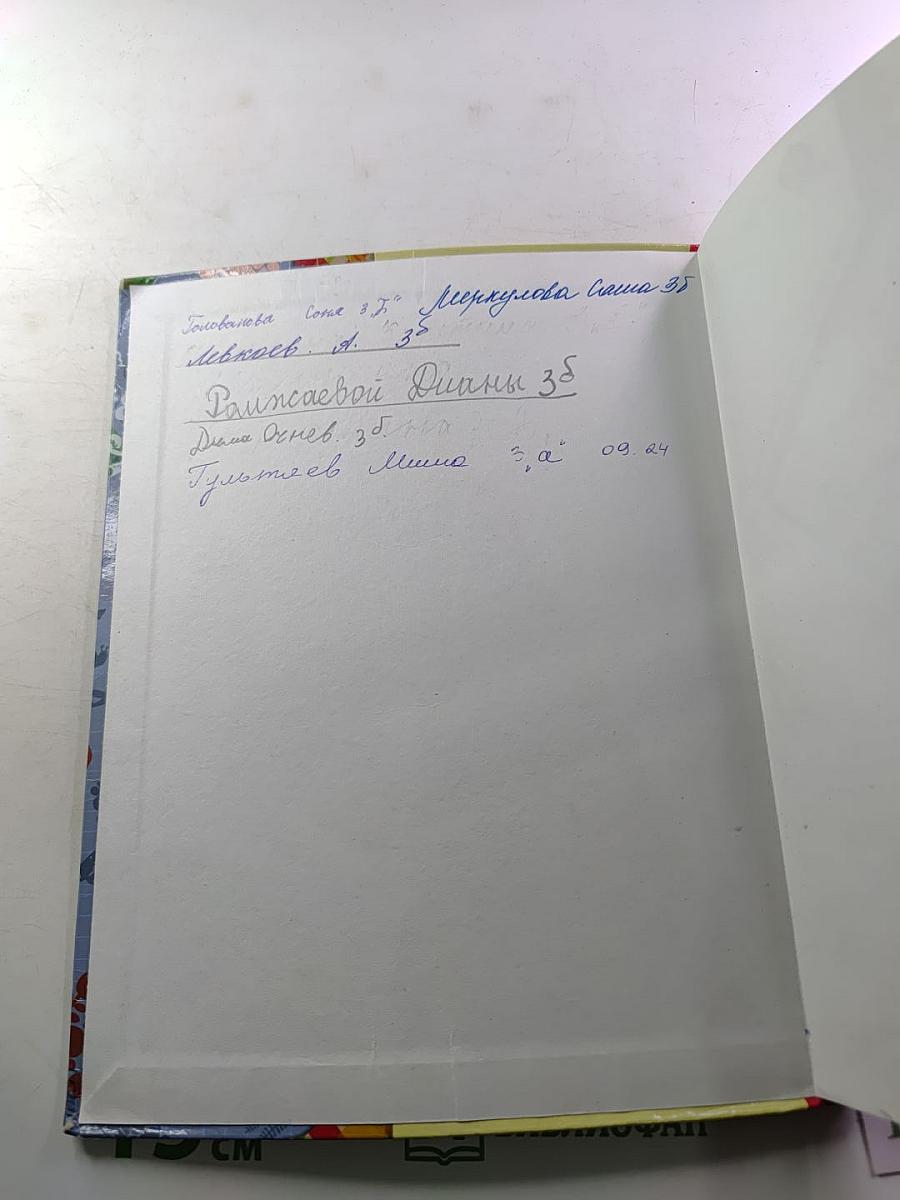 Голованова Соня 3 „Б“ Меркулова Саша 3б
Левкоев. А. 3б
Рамжаевой Дианы 3б
Дима Очнев. 3б.
Гультяев Миша 3 „а“ 09.24
СМ